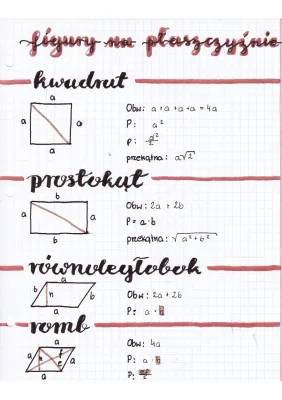 figury na płaszczyźnie
kwadrat
a
a
a
a
Obw: a+a+a+a = 4a
P: a²
P: d²/2
przekątna: a√2
prostokąt
b
a
a
b
Obw: 2a + 2b
P = a·b
przekątna: √a²+b²
równoległobok
a
b
h
b
a
Obw: 2a + 2b
P: a · h
romb
a
a
h
f
e
a
a
Obw: 4a
P: a · h
P: ef/2